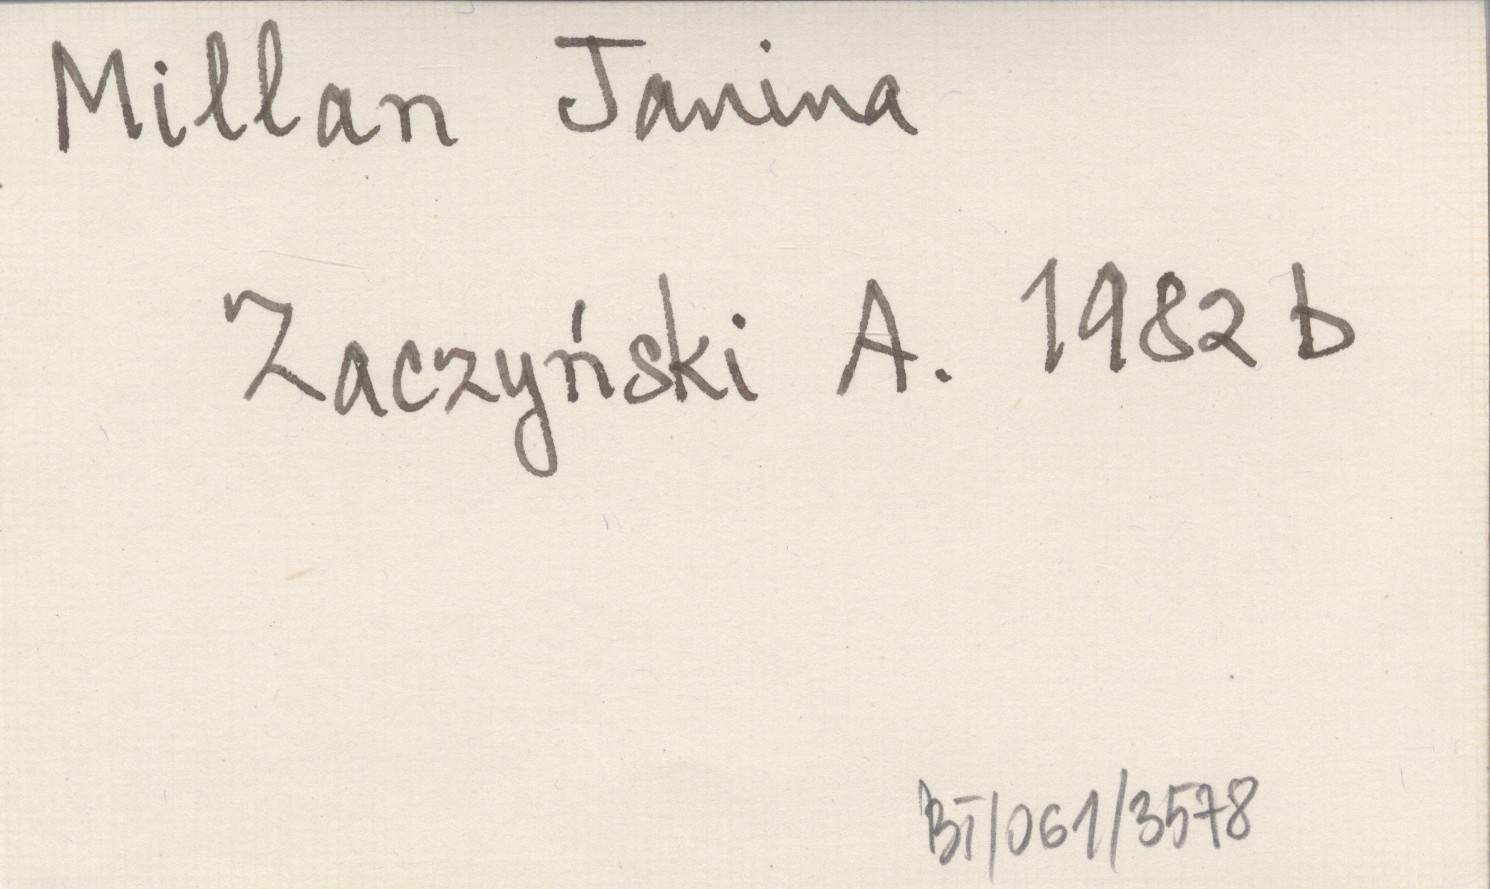 Millan Janina
Zaczyński A. 1982 b
BT/061/3578